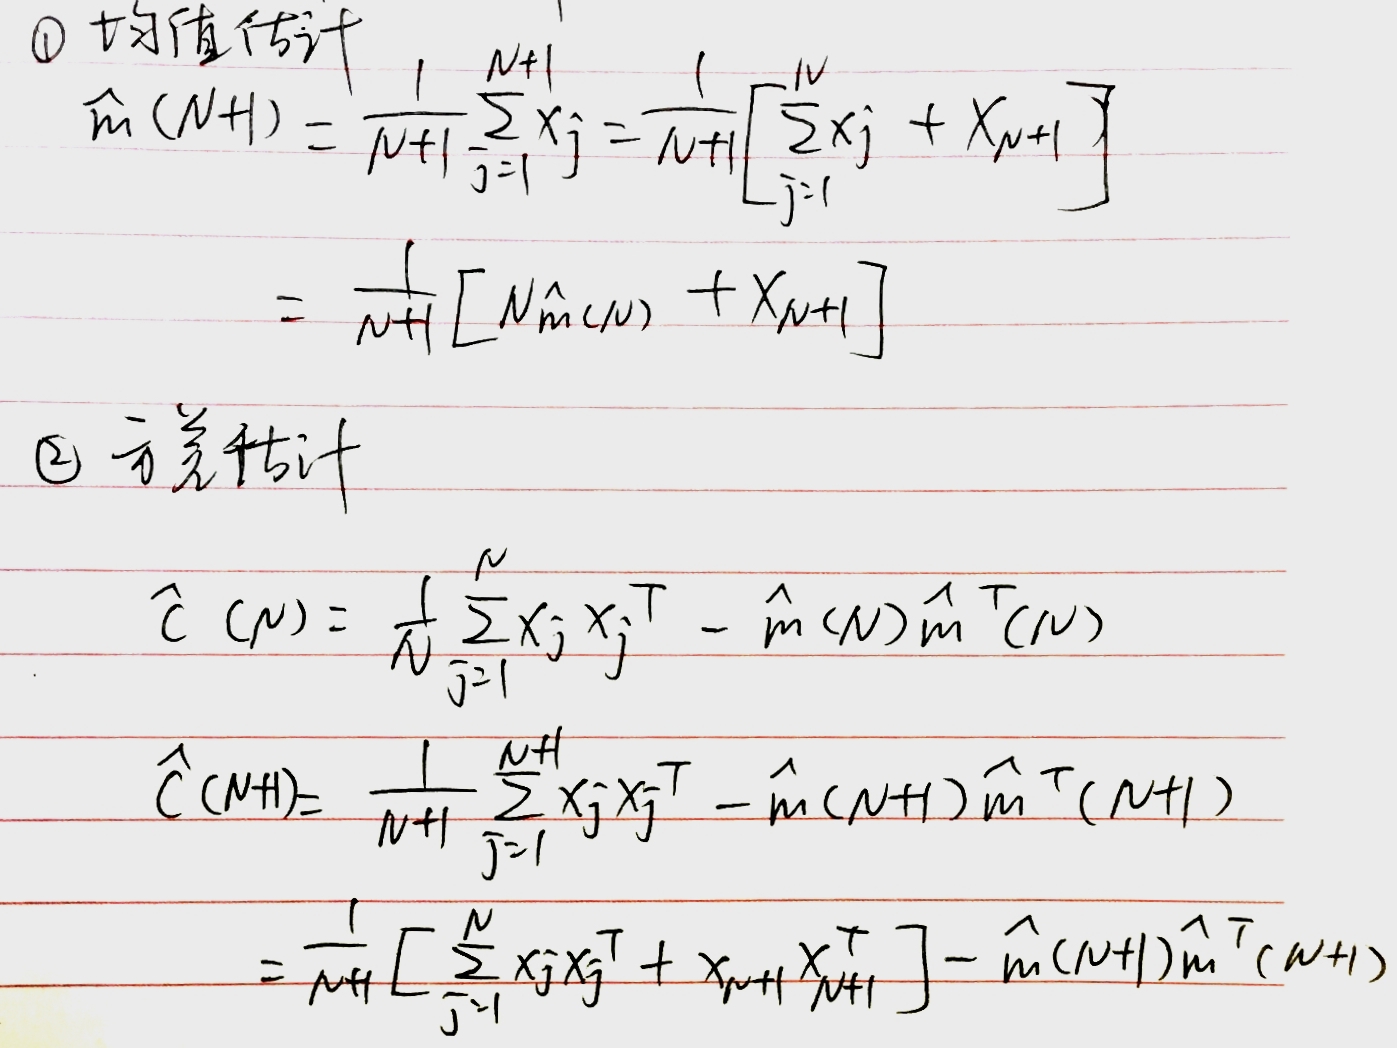 ① 均值估计
m̂(N+1) = 1/(N+1) ∑_{j=1}^{N+1} x_j = 1/(N+1) [∑_{j=1}^{N} x_j + x_{N+1}]
= 1/(N+1) [N m̂(N) + x_{N+1}]
② 方差估计
Ĉ(N) = 1/N ∑_{j=1}^{N} x_j x_j^T - m̂(N) m̂^T(N)
Ĉ(N+1) = 1/(N+1) ∑_{j=1}^{N+1} x_j x_j^T - m̂(N+1) m̂^T(N+1)
= 1/(N+1) [∑_{j=1}^{N} x_j x_j^T + x_{N+1} x_{N+1}^T] - m̂(N+1) m̂^T(N+1)